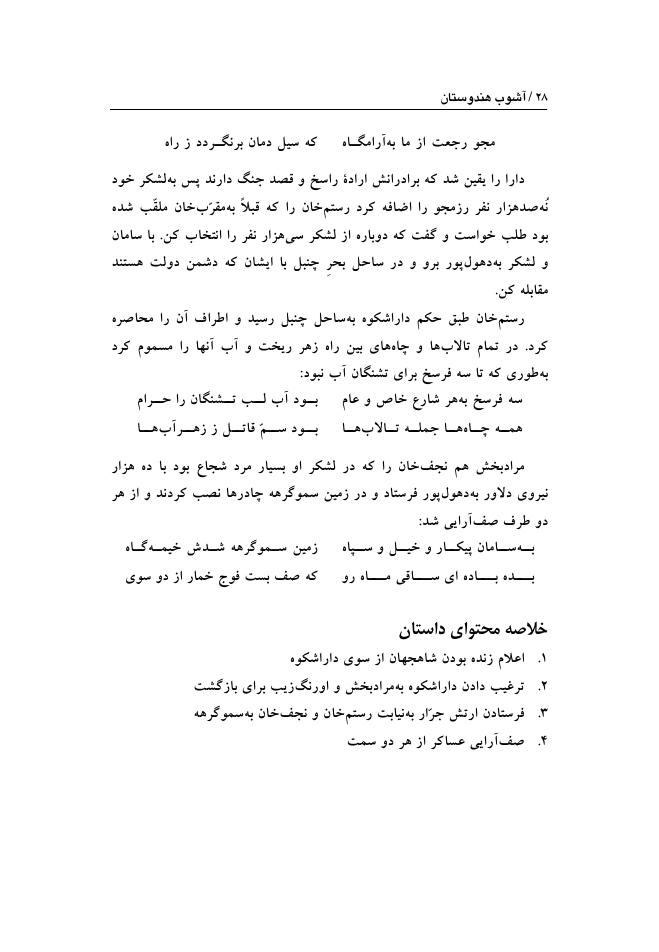 ۲۸ / آشوب هندوستان
مجو رجعت از ما به‌آرامگـاه که سیل دمان برنگـردد ز راه
دارا را یقین شد که برادرانش ارادهٔ راسخ و قصد جنگ دارند پس به‌لشکر خود
نُه‌صدهزار نفر رزمجو را اضافه کرد رستم‌خان را که قبلاً به‌مقرّب‌خان ملقّب شده
بود طلب خواست و گفت که دوباره از لشکر سی‌هزار نفر را انتخاب کن. با سامان
و لشکر به‌دهول‌پور برو و در ساحل بحرِ چنبل با ایشان که دشمن دولت هستند
مقابله کن.
رستم‌خان طبق حکم داراشکوه به‌ساحل چنبل رسید و اطراف آن را محاصره
کرد. در تمام تالاب‌ها و چاه‌های بین راه زهر ریخت و آب آنها را مسموم کرد
به‌طوری که تا سه فرسخ برای تشنگان آب نبود:
سه فرسخ به‌هر شارع خاص و عام بـود آب لـب تـشنگان را حـرام
همـه چـاه‌هـا جملـه تـالاب‌هـا بـود سـمّ قاتـل ز زهـرآب‌هـا
مرادبخش هم نجف‌خان را که در لشکر او بسیار مرد شجاع بود با ده هزار
نیروی دلاور به‌دهول‌پور فرستاد و در زمین سموگرهه چادرها نصب کردند و از هر
دو طرف صف‌آرایی شد:
بـه‌سـامان پیکـار و خیـل و سـپاه زمین سـموگرهه شـدش خیمـه‌گـاه
بـده بـاده ای سـاقی مـاه رو که صف بست فوج خمار از دو سوی
خلاصه محتوای داستان
۱. اعلام زنده بودن شاهجهان از سوی داراشکوه
۲. ترغیب دادن داراشکوه به‌مرادبخش و اورنگ‌زیب برای بازگشت
۳. فرستادن ارتش جرّار به‌نیابت رستم‌خان و نجف‌خان به‌سموگرهه
۴. صف‌آرایی عساکر از هر دو سمت